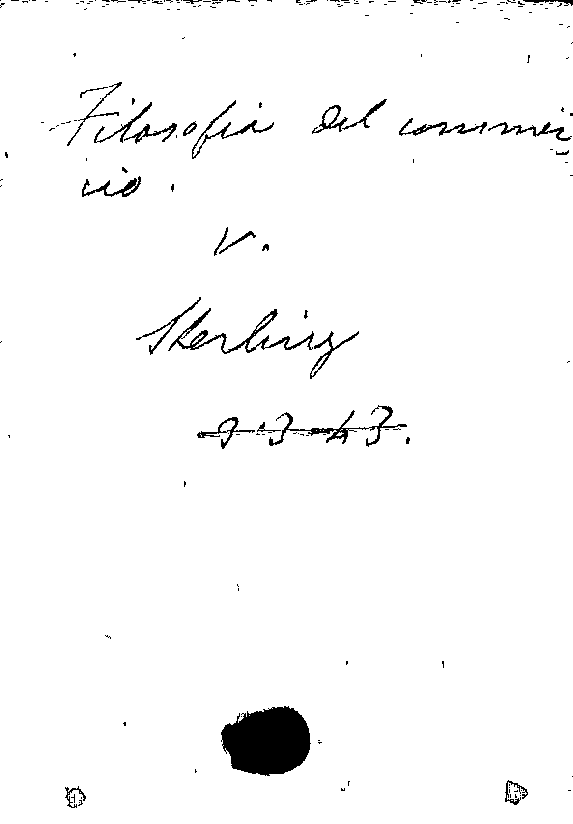 Filosofia del commer
cio.
V.
Sterling
9.3.43.